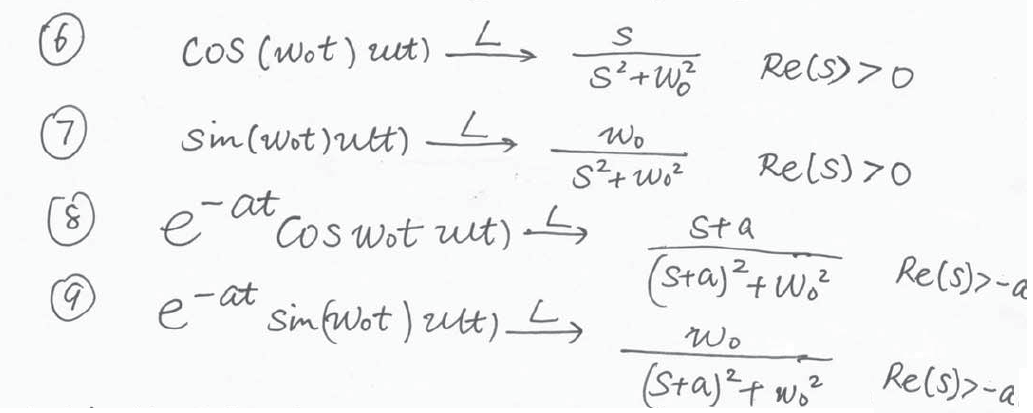 ⑥ cos(w₀t) u(t) —L→ s/(s²+w₀²) Re(s)>0
⑦ sin(w₀t) u(t) —L→ w₀/(s²+w₀²) Re(s)>0
⑧ e^(-at) cos w₀t u(t) —L→ (s+a)/((s+a)²+w₀²) Re(s)>-a
⑨ e^(-at) sin(w₀t) u(t) —L→ w₀/((s+a)²+w₀²) Re(s)>-a